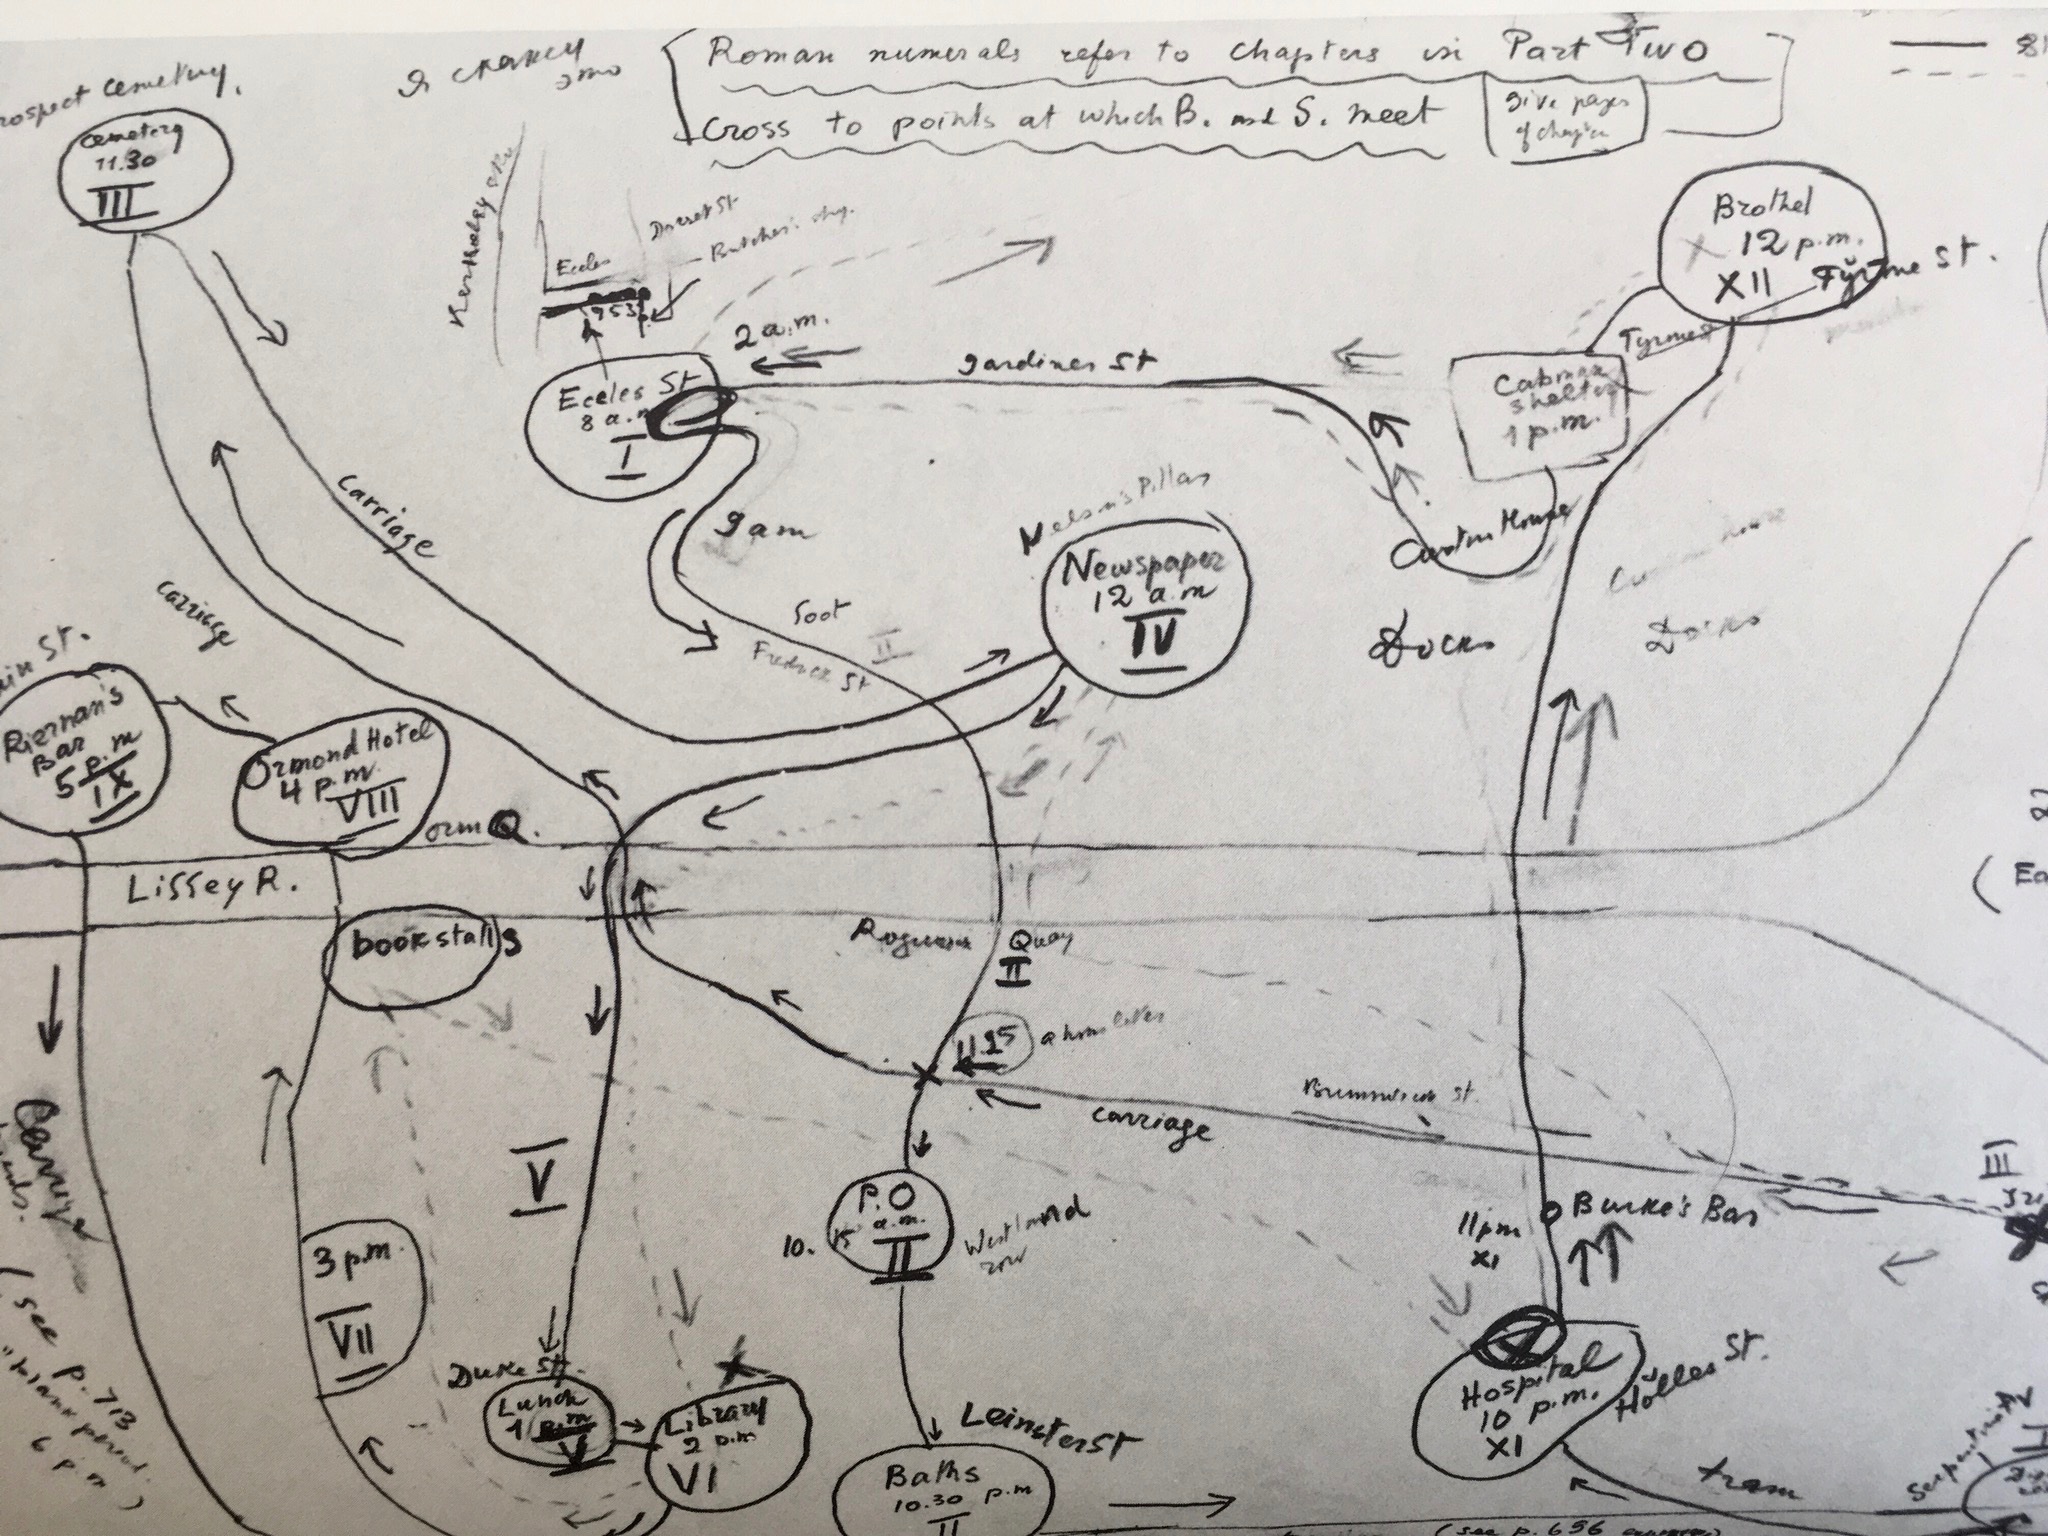 Roman numerals refer to chapters in Part Two
cross to points at which B. and S. meet
give pages
of chapter
Cemetery.
Cemetery
11.30
III
Dorset St
Eccles
Brothel
12 p.m.
XII
St.
2 a.m.
gardiner St
shelter
1 p.m.
Eccles St
8 a.m
I
9 am
carriage
carriage
foot
II
St
Nelson's Pillar
Newspaper
12 a.m
IV
Custom House
Docks
Docks
St.
Kiernan's
Bar
5 p.m
IX
Ormond Hotel
4 p.m.
VIII
orm Q.
Liffey R.
bookstalls
Quay
II
11.25
Brunswick St.
carriage
III
Carriage
V
P.O
a.m.
10.
II
Westland
row
11 pm
XI
Burke's Bar
3 p.m.
VII
(see p. 713
"blank period"
6 p.m)
Duke St.
Lunch
1 p.m
V
Library
2 p.m
VI
Leinster St
Baths
10.30 p.m
II
Hospital
10 p.m.
XI
Holles St.
tram
(see p. 656